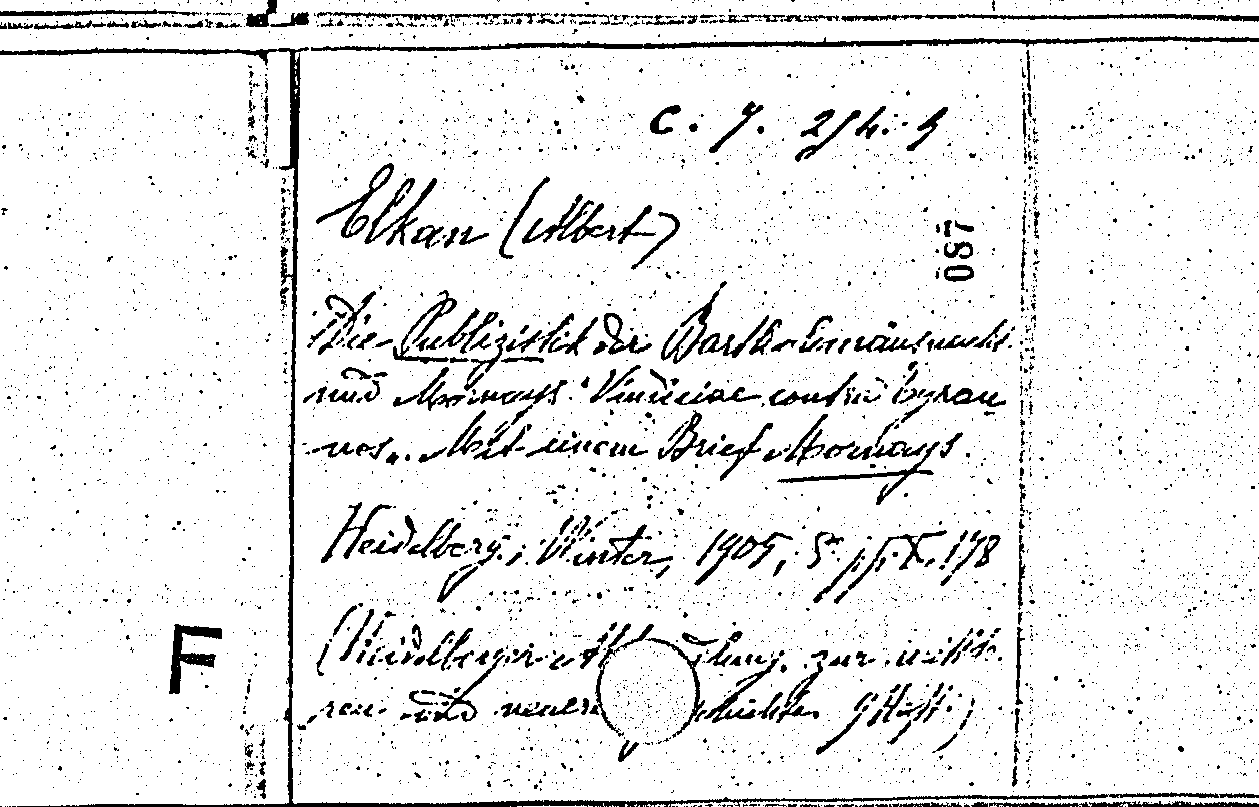 C. 7.
Elkan (Albert)
087
Die Publizistik der Barth
und Mornays "Vindiciae contra tyran
nos". Mit einem Brief Mornays.
Heidelberg, Winter, 1905, X. 178
(Heidelberger zur mittle
ren und neueren 9 Heft.)
F